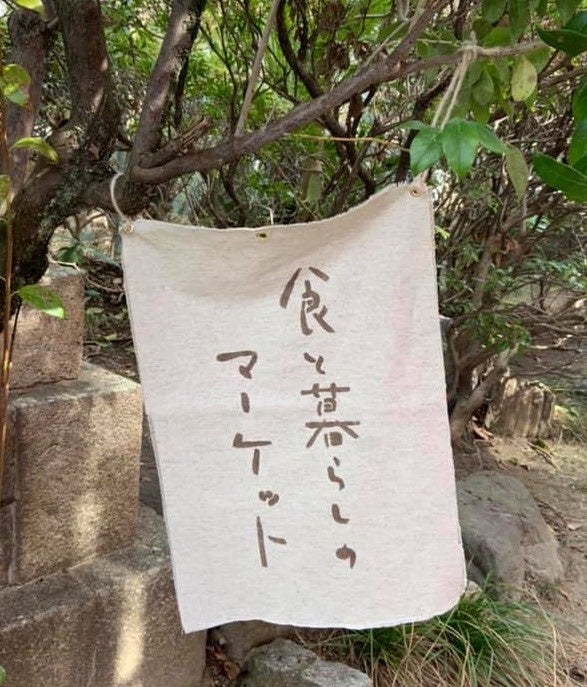 食と暮らしの
マーケット